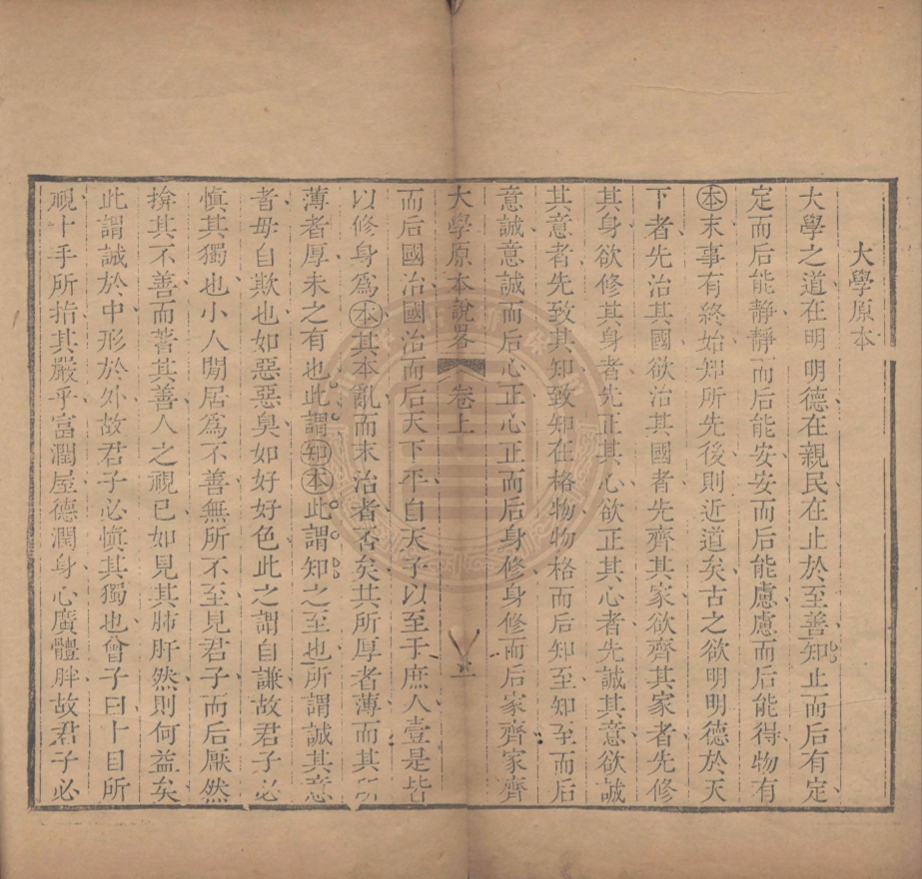 大學原本
大學之道在明明德在親民在止於至善知止而后有定
定而后能靜靜而后能安安而后能慮慮而后能得物有
本末事有終始知所先後則近道矣古之欲明明德於天
下者先治其國欲治其國者先齊其家欲齊其家者先修
其身欲修其身者先正其心欲正其心者先誠其意欲誠
其意者先致其知致知在格物物格而后知至知至而后
意誠意誠而后心正心正而后身修身修而后家齊家齊
大學原本說畧 卷上 一
而后國治國治而后天下平自天子以至于庶人壹是皆
以修身爲本其本亂而末治者否矣其所厚者薄而其所
薄者厚未之有也此謂知本此謂知之至也所謂誠其意
者毋自欺也如惡惡臭如好好色此之謂自謙故君子必
慎其獨也小人閒居爲不善無所不至見君子而后厭然
揜其不善而著其善人之視已如見其肺肝然則何益矣
此謂誠於中形於外故君子必慎其獨也曾子曰十目所
視十手所指其嚴乎富潤屋德潤身心廣體胖故君子必